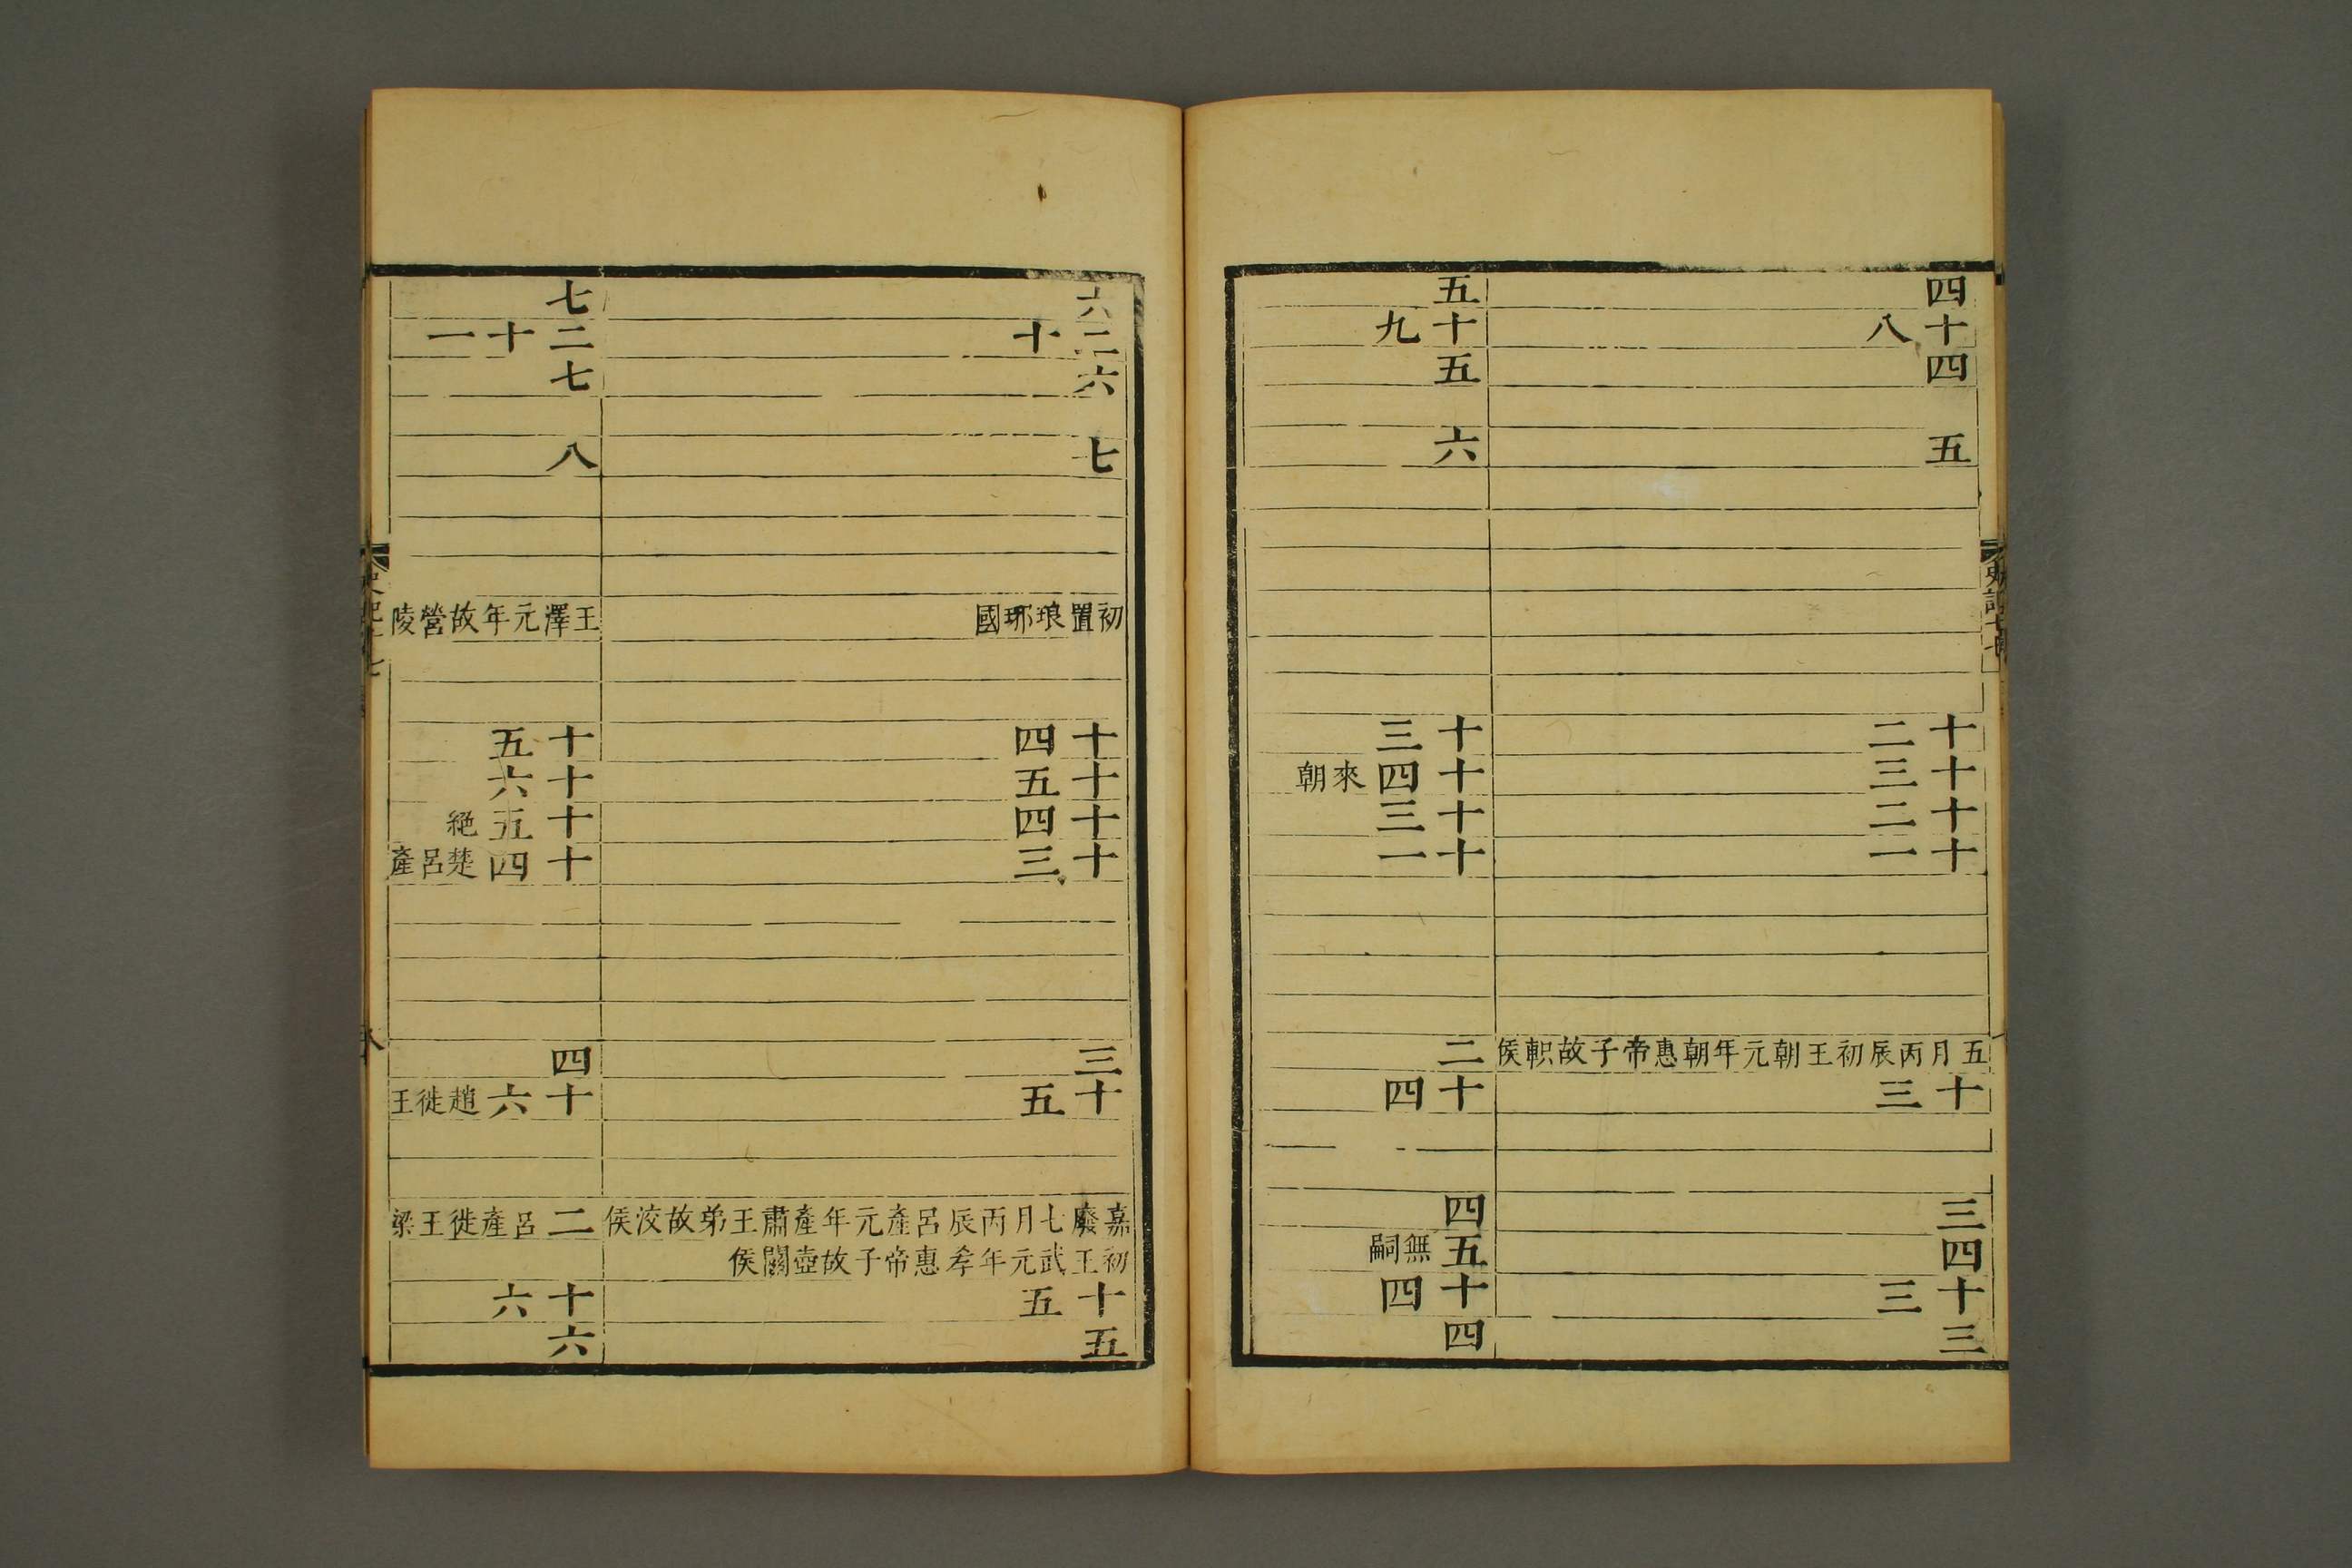 四
十八
四
五
十二
十三
十二
十一
五月丙辰初王朝元年朝惠帝子故軹侯
十三
三
四
十三
三
五
十九
五
六
十三
十四來朝
十三
十一
二
十四
四
五無嗣
十四
四
六
二十
六
七
初置琅琊國
十四
十五
十四
十三
三
十五
嘉廢七月丙辰呂產元年產肅王弟故洨侯
初王武元年孝惠帝子故壺關侯
十五
五
七
二十一
七
八
王澤元年故營陵
十五
十六
十五絶
十四楚呂產
四
十六趙徙王
二呂產徙王梁
十六
六